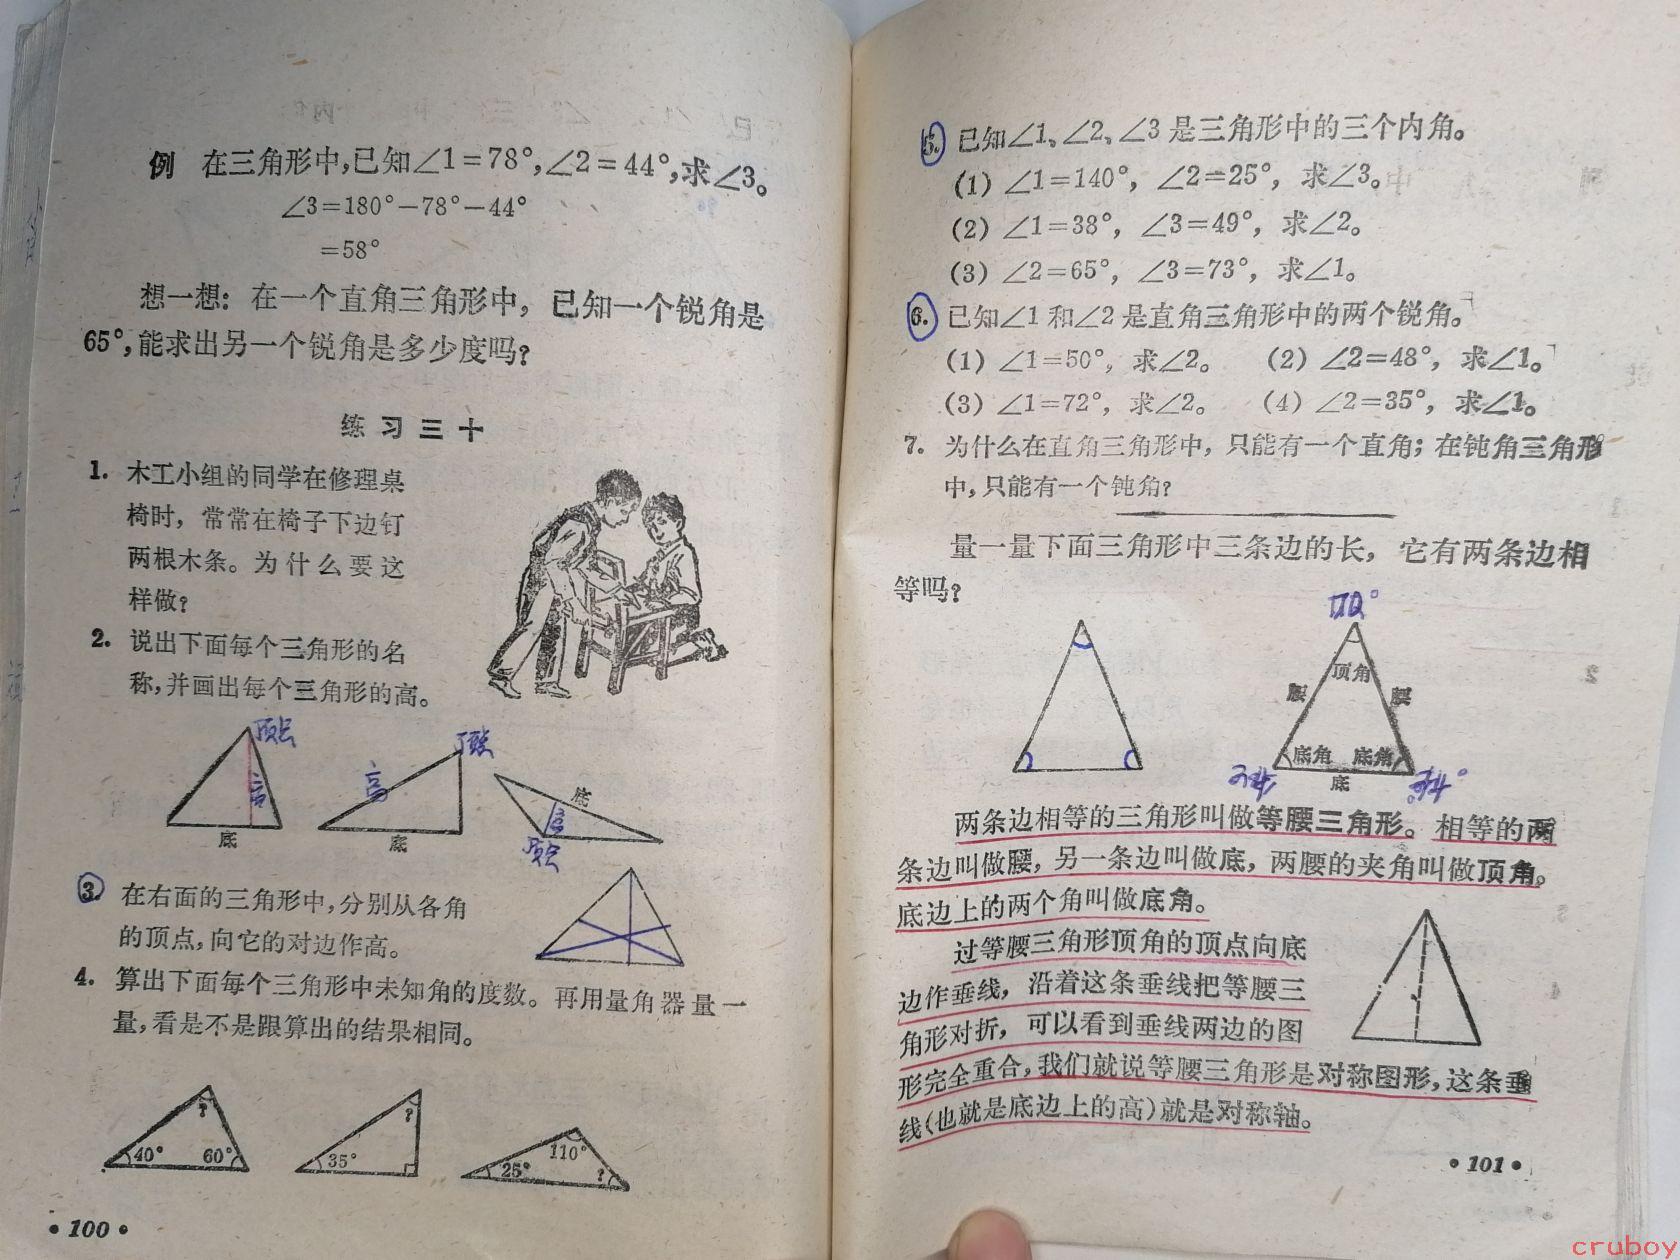 例 在三角形中,已知∠1=78°,∠2=44°,求∠3。
∠3=180°-78°-44°
=58°
想一想：在一个直角三角形中，已知一个锐角是
65°,能求出另一个锐角是多少度吗？
练习三十
1. 木工小组的同学在修理桌
椅时，常常在椅子下边钉
两根木条。为什么要这
样做？
2. 说出下面每个三角形的名
称,并画出每个三角形的高。
顶点
高
底
顶点
高
底
底
高
顶点
3. 在右面的三角形中,分别从各角
的顶点,向它的对边作高。
4. 算出下面每个三角形中未知角的度数。再用量角器量一
量,看是不是跟算出的结果相同。
?
40° 60°
?
35°
110°
25° ?
·100·
5. 已知∠1、∠2、∠3是三角形中的三个内角。
(1) ∠1=140°，∠2=25°，求∠3。
(2) ∠1=38°，∠3=49°，求∠2。
(3) ∠2=65°，∠3=73°，求∠1。
6. 已知∠1和∠2是直角三角形中的两个锐角。
(1) ∠1=50°，求∠2。 (2) ∠2=48°，求∠1。
(3) ∠1=72°，求∠2。 (4) ∠2=35°，求∠1。
7. 为什么在直角三角形中，只能有一个直角；在钝角三角形
中,只能有一个钝角？
量一量下面三角形中三条边的长，它有两条边相
等吗？
顶角
腰 腰
底角 底角
底
两条边相等的三角形叫做等腰三角形。相等的两
条边叫做腰，另一条边叫做底，两腰的夹角叫做顶角。
底边上的两个角叫做底角。
过等腰三角形顶角的顶点向底
边作垂线，沿着这条垂线把等腰三
角形对折，可以看到垂线两边的图
形完全重合，我们就说等腰三角形是对称图形，这条垂
线(也就是底边上的高)就是对称轴。
·101·
cruboy